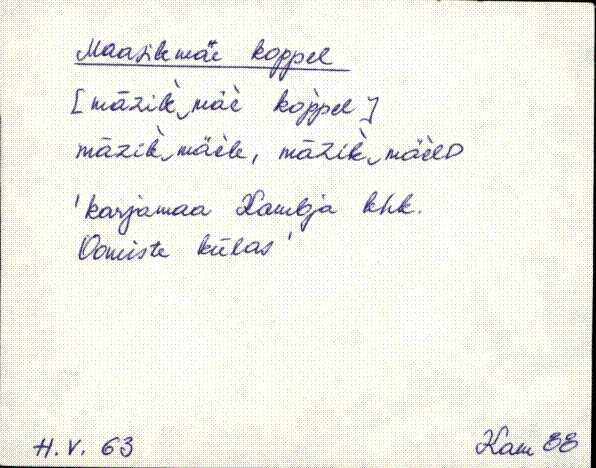 Maasikmäe koppel
[māzik̀‿mäè kop̀pel]
māzik̀‿mäèle, māzik̀‿mäelt
'karjamaa Kambja khk.
Oomiste külas'
H.V. 63
Kam 88